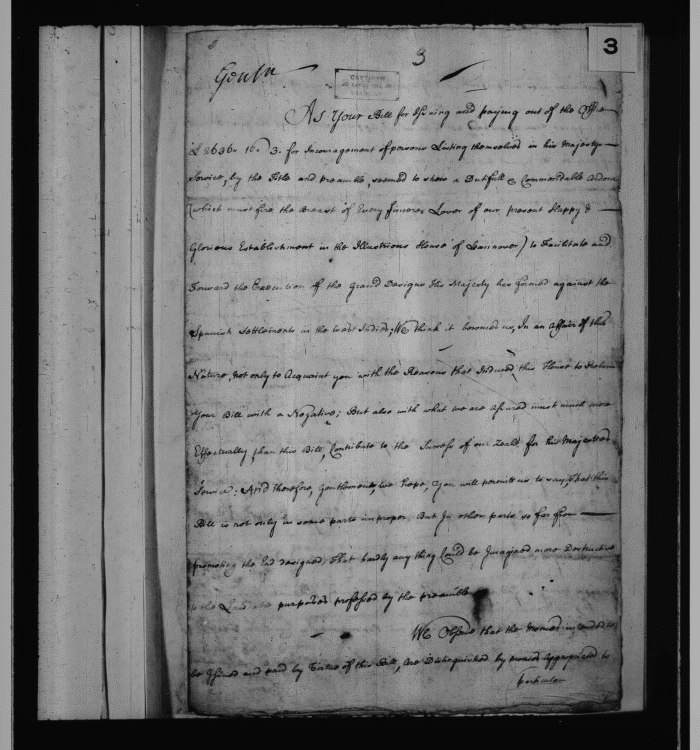 3
3
Gentn
As Your Bill for Issuing and paying out of the Office
£ 16. 3. for Incouragement of persons Listing themselves in his Majestys
Service, by the Title and preamble, seemed to shew a Dutifull & Commendable Ardour
(which must fire the Breast of Every Sincere Lover of our present Happy &
Glorious Establishment in the Illustrious House of Hannover) to Facilitate and
Forward the Execution of the Grand Designs His Majesty has formed against the
Spanish Settlements in the West Indies; We think it becomes us, In an affair of this
Nature, not only to Acquaint you with the Reasons that Induced this House to Return
Your Bill with a Negative; But also with what we are assured must much more
Effectually, than this Bill, Contribute to the Success of our Zeale for his Majesties
Service: And therefore, Gentlemen, we hope, you will permit us to say, That this
Bill is not only in some parts improper, But In other parts so far from
promoting the End designed, That hardly any thing Could be Imagined more Destructive
to the purposes professed by the preamble
We Observe that the Monies intended to
be Issued and paid by Virtue of this Bill, are Distinguished by monies Appropriated to
particular